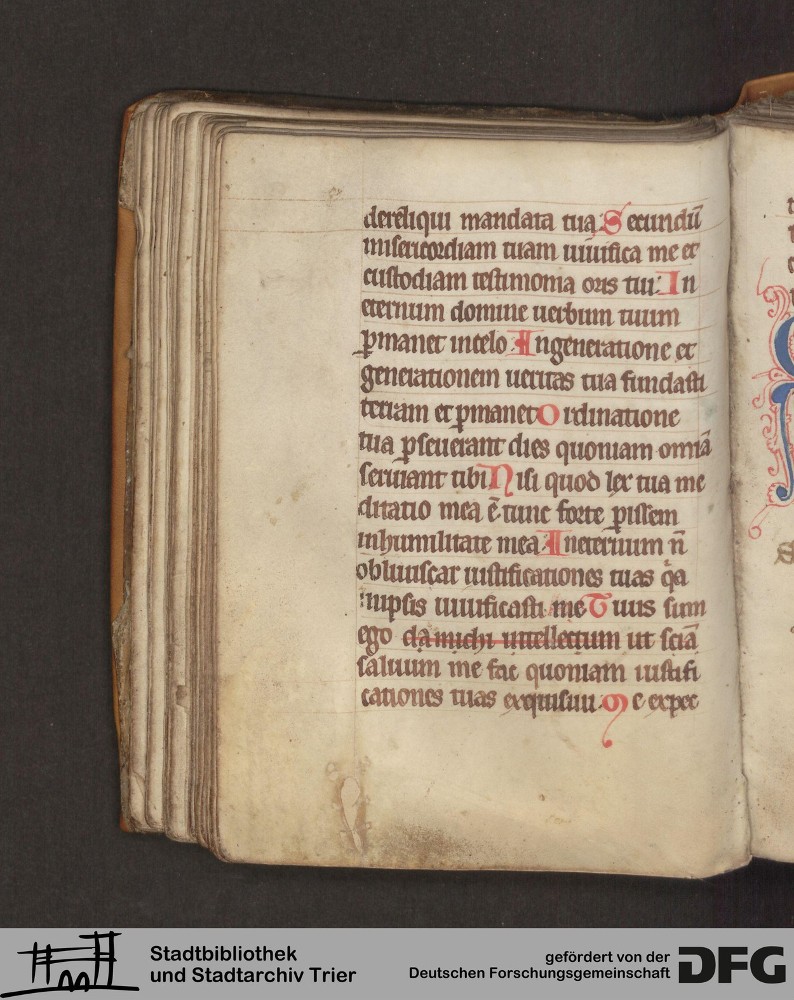 dereliqui mandata tua Secundū
misericordiam tuam uiuifica me et
custodiam testimonia oris tui: In
eternum domine uerbum tuum
ꝑmanet incelo. In generatione et
generationem ueritas tua fundasti
terram et ꝑmanet Ordinatione
tua ꝑseuerant dies quoniam omniā
seruiant tibi Nisi quod lex tua me
ditatio mea ē tunc forte ꝑissem
inhumilitate mea In eternum n̄
obliuiscar iustificationes tuas qͣa
inipsis uiuificasti me Tuus sum
ego da michi intellectum ut sciā
saluum me fac quoniam iustifi
cationes tuas exquisiui. Me expec
Stadtbibliothek
und Stadtarchiv Trier
gefördert von der
Deutschen Forschungsgemeinschaft
DFG